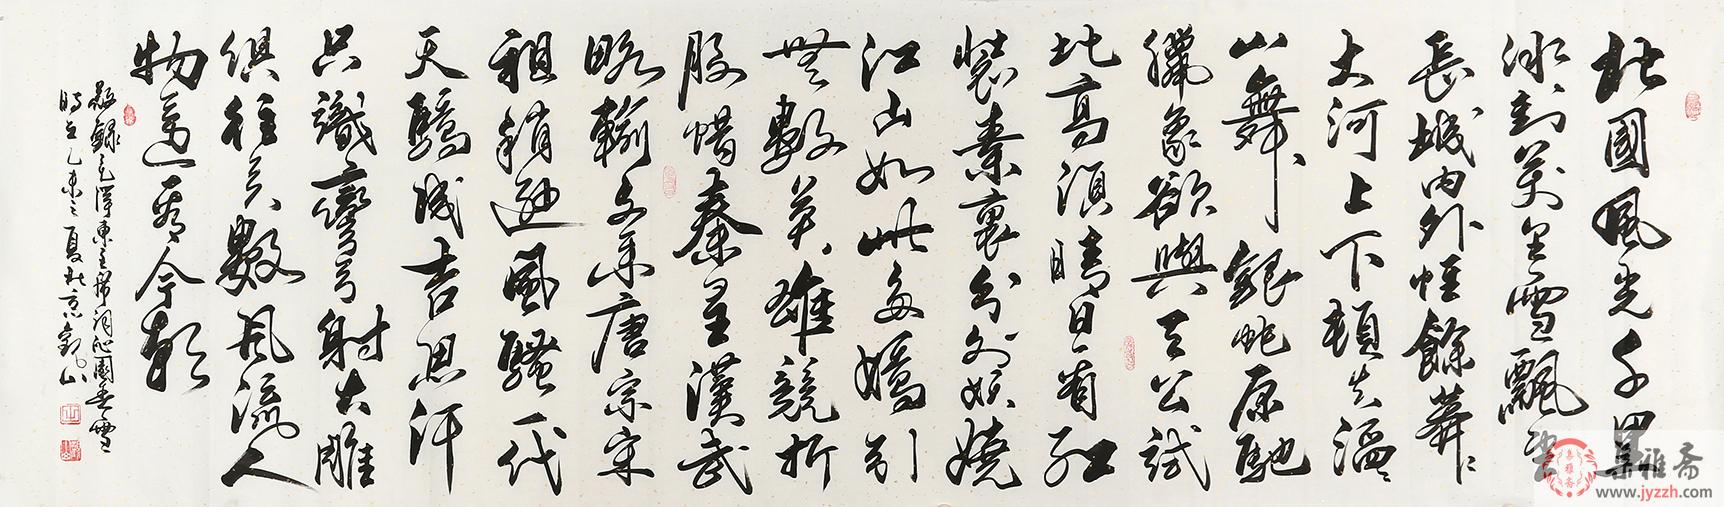 北國風光千里
冰封萬里雪飄望
長城內外惟餘莽莽
大河上下頓失滔滔
山舞銀蛇原馳
蠟象欲與天公試
比高須晴日看紅
裝素裹分外妖嬈
江山如此多嬌引
無數英雄競折
腰惜秦皇漢武
略輸文采唐宗宋
祖稍遜風騷一代
天驕成吉思汗
只識彎弓射大雕
俱往矣數風流人
物還看今朝
敬錄毛澤東主席詞沁園春雪
時在乙未之夏北京
集雅斋
www.jyzzh.com